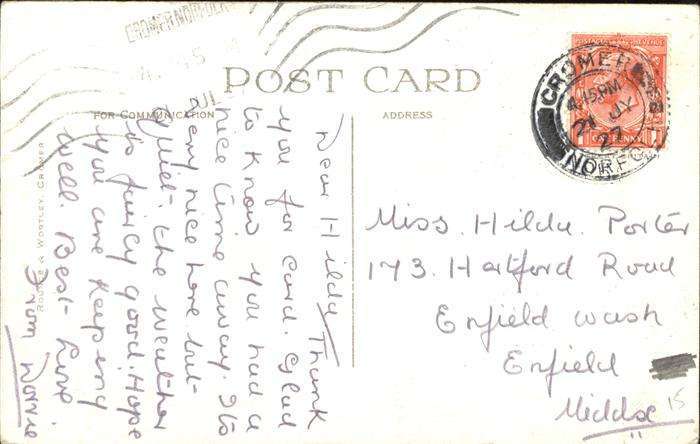 POST CARD
FOR COMMUNICATION
ADDRESS
Dear Hilda Thank
you for card. Glad
to know you had a
nice time away. Its
very nice here but
quiet. the weather
is fairly good. Hope
you are keeping
well. Best Love
From Dorrie
ROUNCE & WORTLEY, CROMER
CROMER NORFOLK
CROMER
4.15PM
21 JY
27
NORFOLK
ONE PENNY
Miss. Hilda. Porter
173. Hertford Road
Enfield wash
Enfield
Middx
15